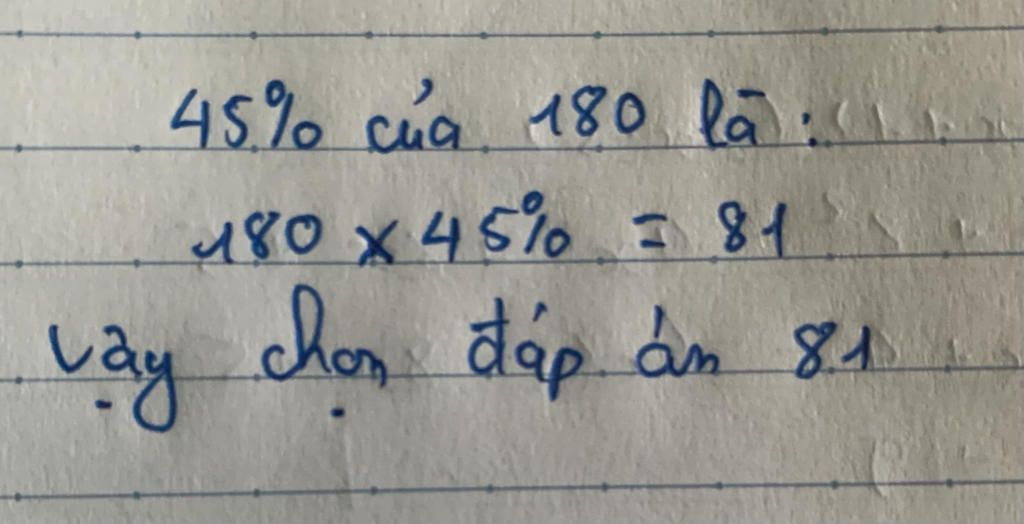 45% của 180 là:
180 x 45% = 81
Vậy chọn đáp án 81